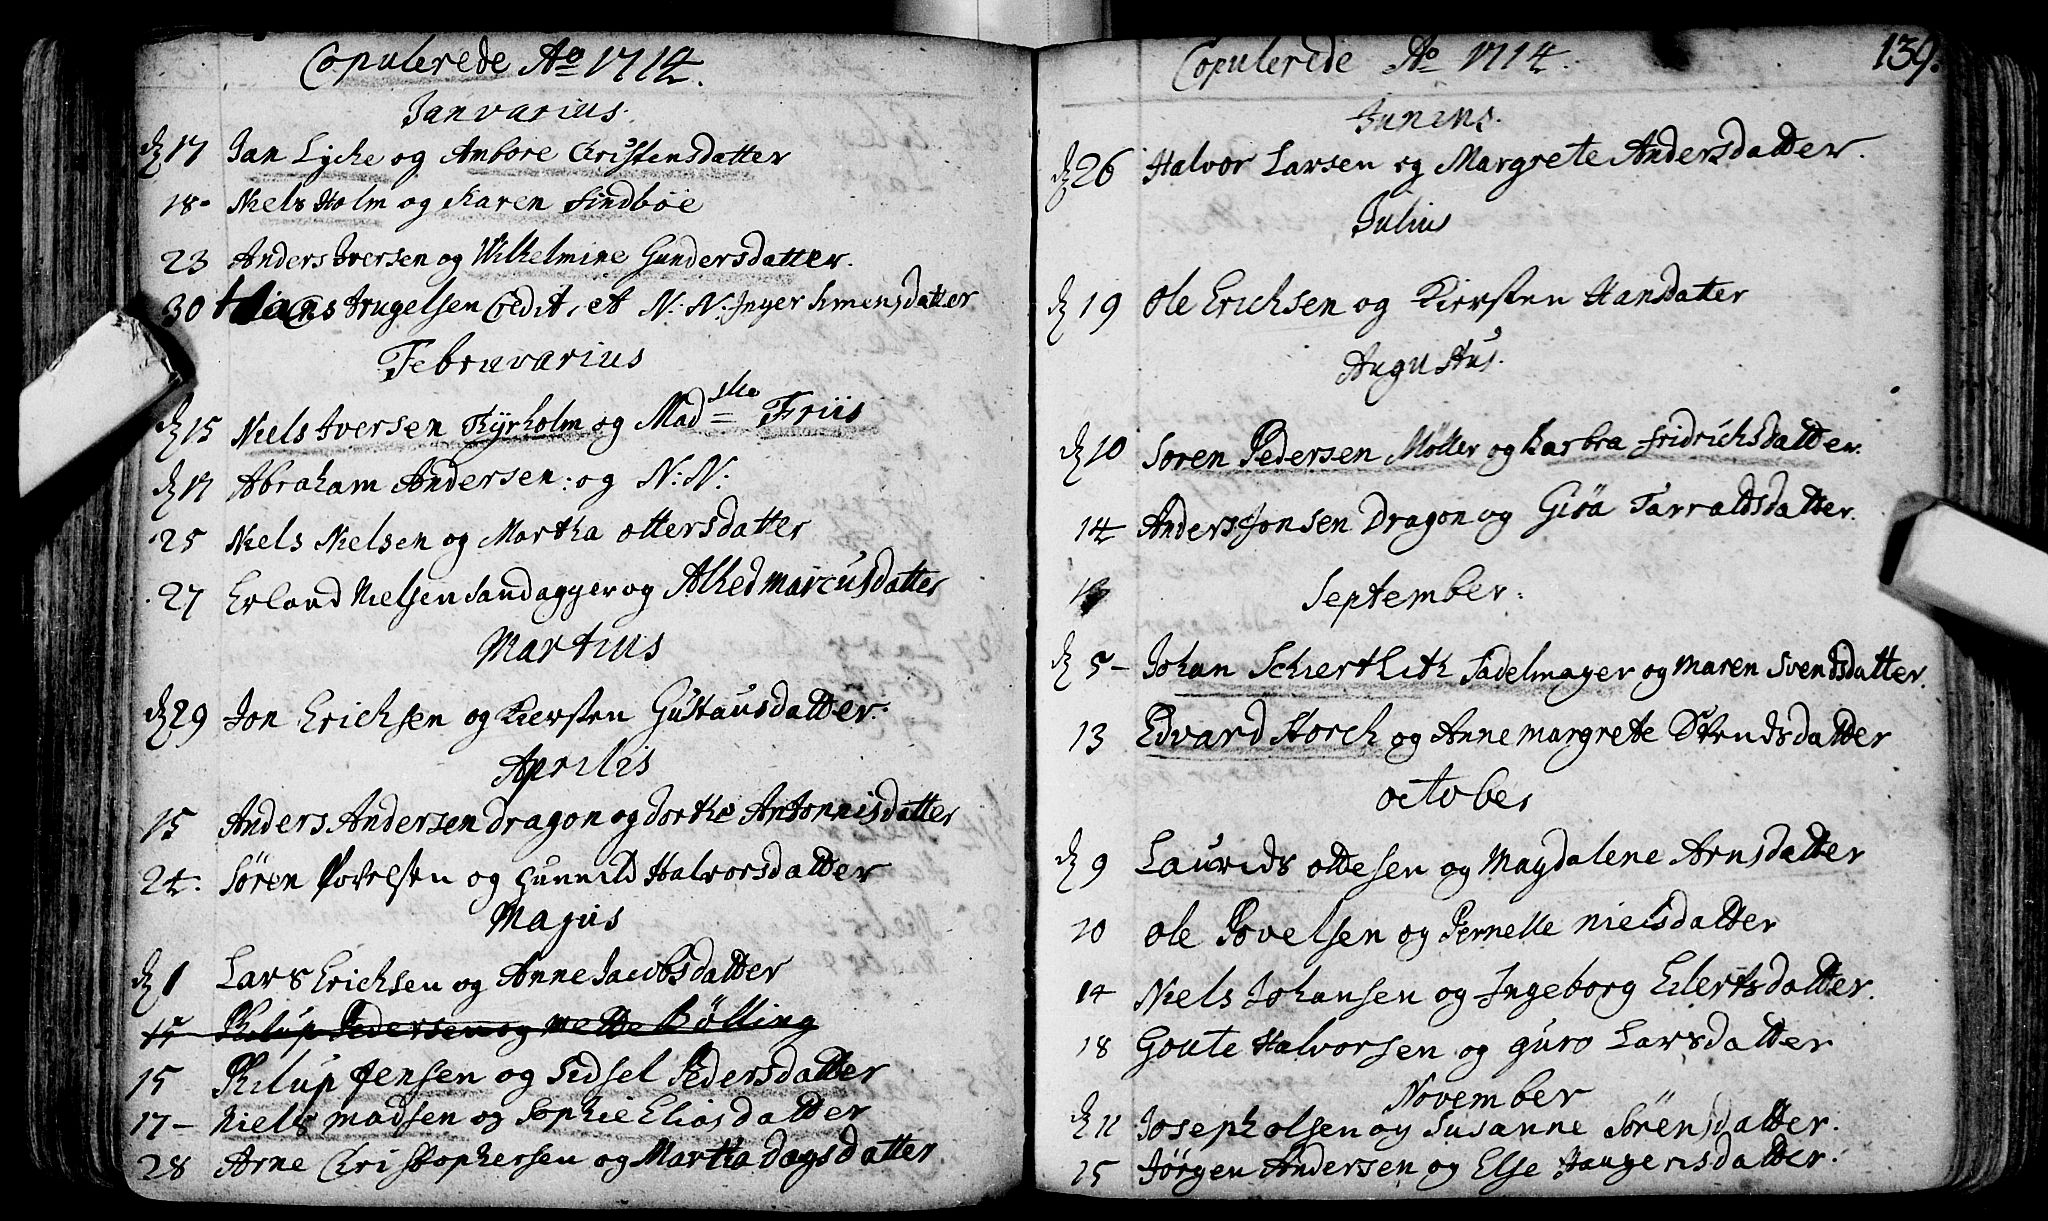 Copulerede Ao 1714.
Janvarius.
dz 17 Jan Lyche og Anbore Christensdatter
18- Niels Holm og Karen Findböe
23 Anders Iversen og Wilhelmine Gundersdatter.
30 Hans Trugelsen Credit, et N: N: Inger Simensdatter
Februvarius
dz 15 Niels Iversen Kyrholm og Madslle Friis
dz 17 Abraham Andersen: og N: N:
25 Niels Nielsen og Martha Ottersdatter
27 Erland Nielsen Sandagger og Alhed Marcusdatter
Martius
dz 29 Jon Erichsen og Kiersten Gustausdatter.
Aprilis
15 Anders Andersen Dragon og Dorthe Antonnisdatter
24. Sören Povelsen og Gunnild Halvorsdatter
Majus
dz 1 Lars Erichsen og Anne Jacobsdatter
Philup Pedersen og Mette Bölling
15 Philup Jensen og Sidsel Pedersdatter
17- Niels Madsen og Sophie Eliasdatter
28 Arne Christophersen og Martha Dagsdatter
139.
Copulerede Ao 1714.
Junius.
dz 26 Halvor Larsen og Margrete Andersdatter.
Julius
dz 19 Ole Erichsen og Kiersten Hansdatter
Augustus.
dz 10 Soren Pedersen Möller og Barbra Fridrichsdatter.
14 Anders Jonsen Dragon og Giöa Tarraldsdatter.
September:
dz 5- Johan Schierthith Sadelmager og Maren Svendsdatter.
13 Edvard Storch og Anne Margrete Svendsdatter
October
dz 9 Laurids Ottesen og Magdalene Arnsdatter
10 Ole Povelsen og Pernelle Nielsdatter
14 Niels Johansen og Ingeborg Eilertsdatter.
18 Goute Halvorsen og Guro Larsdatter
November
dz 11 Joseph Olsen og Susanne Sörensdatter.
15 Jörgen Andersen og Else Haagensdatter.